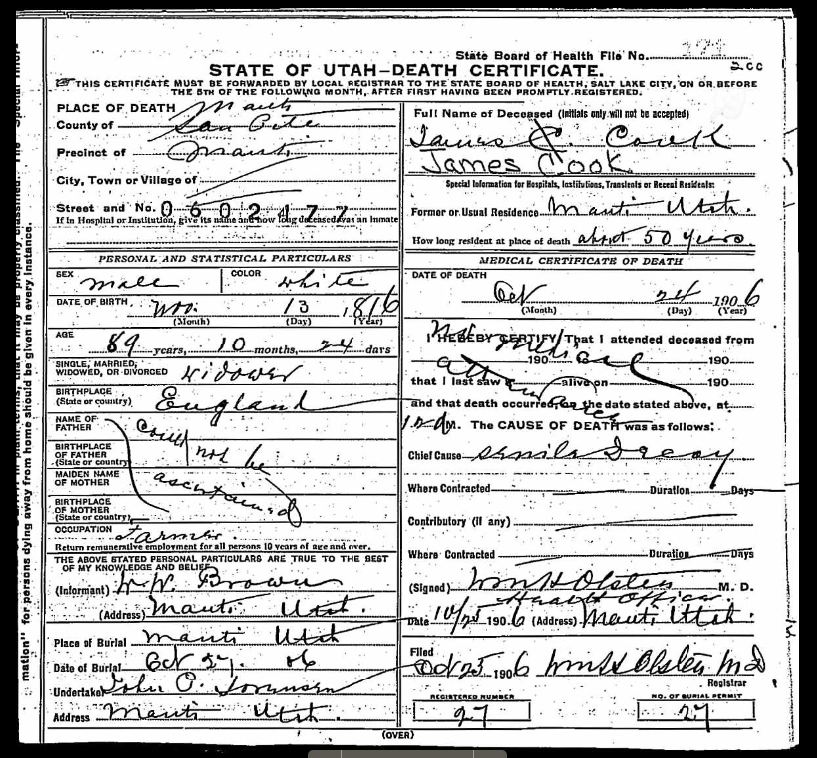 State Board of Health File No.
200
STATE OF UTAH—DEATH CERTIFICATE.
THIS CERTIFICATE MUST BE FORWARDED BY LOCAL REGISTRAR TO THE STATE BOARD OF HEALTH, SALT LAKE CITY, ON OR BEFORE
THE 5TH OF THE FOLLOWING MONTH, AFTER FIRST HAVING BEEN PROMPTLY REGISTERED.
PLACE OF DEATH Manti
County of San Pete
Precinct of Manti
City, Town or Village of
Street and No. 0502477
If in Hospital or Institution, give its name and how long deceased was an inmate
PERSONAL AND STATISTICAL PARTICULARS
SEX male COLOR white
DATE OF BIRTH Nov. 13 1816
(Month) (Day) (Year)
AGE 89 years, 10 months, 24 days
SINGLE, MARRIED, WIDOWED, OR DIVORCED widower
BIRTHPLACE (State or country) England
NAME OF FATHER could
BIRTHPLACE OF FATHER (State or country) not be
MAIDEN NAME OF MOTHER ascertained
BIRTHPLACE OF MOTHER (State or country)
OCCUPATION Farmer.
Return remunerative employment for all persons 10 years of age and over.
THE ABOVE STATED PERSONAL PARTICULARS ARE TRUE TO THE BEST
OF MY KNOWLEDGE AND BELIEF
(Informant) W. W. Brown
(Address) Manti Utah.
Place of Burial Manti Utah
Date of Burial Oct 27. 06
Undertaker John O. Sorensen
Address Manti Utah.
Full Name of Deceased (Initials only will not be accepted)
James C. Cook
James Cook
Special Information for Hospitals, Institutions, Transients or Recent Residents:
Former or Usual Residence Manti Utah.
How long resident at place of death about 50 years.
MEDICAL CERTIFICATE OF DEATH
DATE OF DEATH
Oct 24 1906
(Month) (Day) (Year)
I HEREBY CERTIFY, That I attended deceased from
190 to 190
No medical
that I last saw alive on 190
attendance
and that death occurred, on the date stated above, at
M. The CAUSE OF DEATH was as follows:
Chief Cause Senile Decay
Where Contracted Duration Days
Contributory (if any)
Where Contracted Duration Days
(Signed) Wm H Olsten M. D.
Health Officer
Date 10/25 1906 (Address) Manti Utah.
Filed
Oct 25 1906 Wm H Olsten MD
Registrar
REGISTERED NUMBER NO. OF BURIAL PERMIT
27 27
(OVER)
mation" for persons dying away from home should be given in every instance.